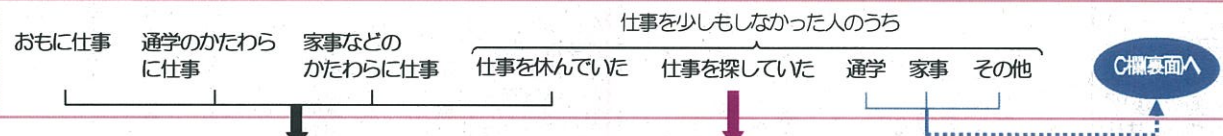 仕事を少しもしなかった人のうち
おもに仕事
通学のかたわら
に仕事
家事などの
かたわらに仕事
仕事を休んでいた
仕事を探していた
通学
家事
その他
C欄裏面へ